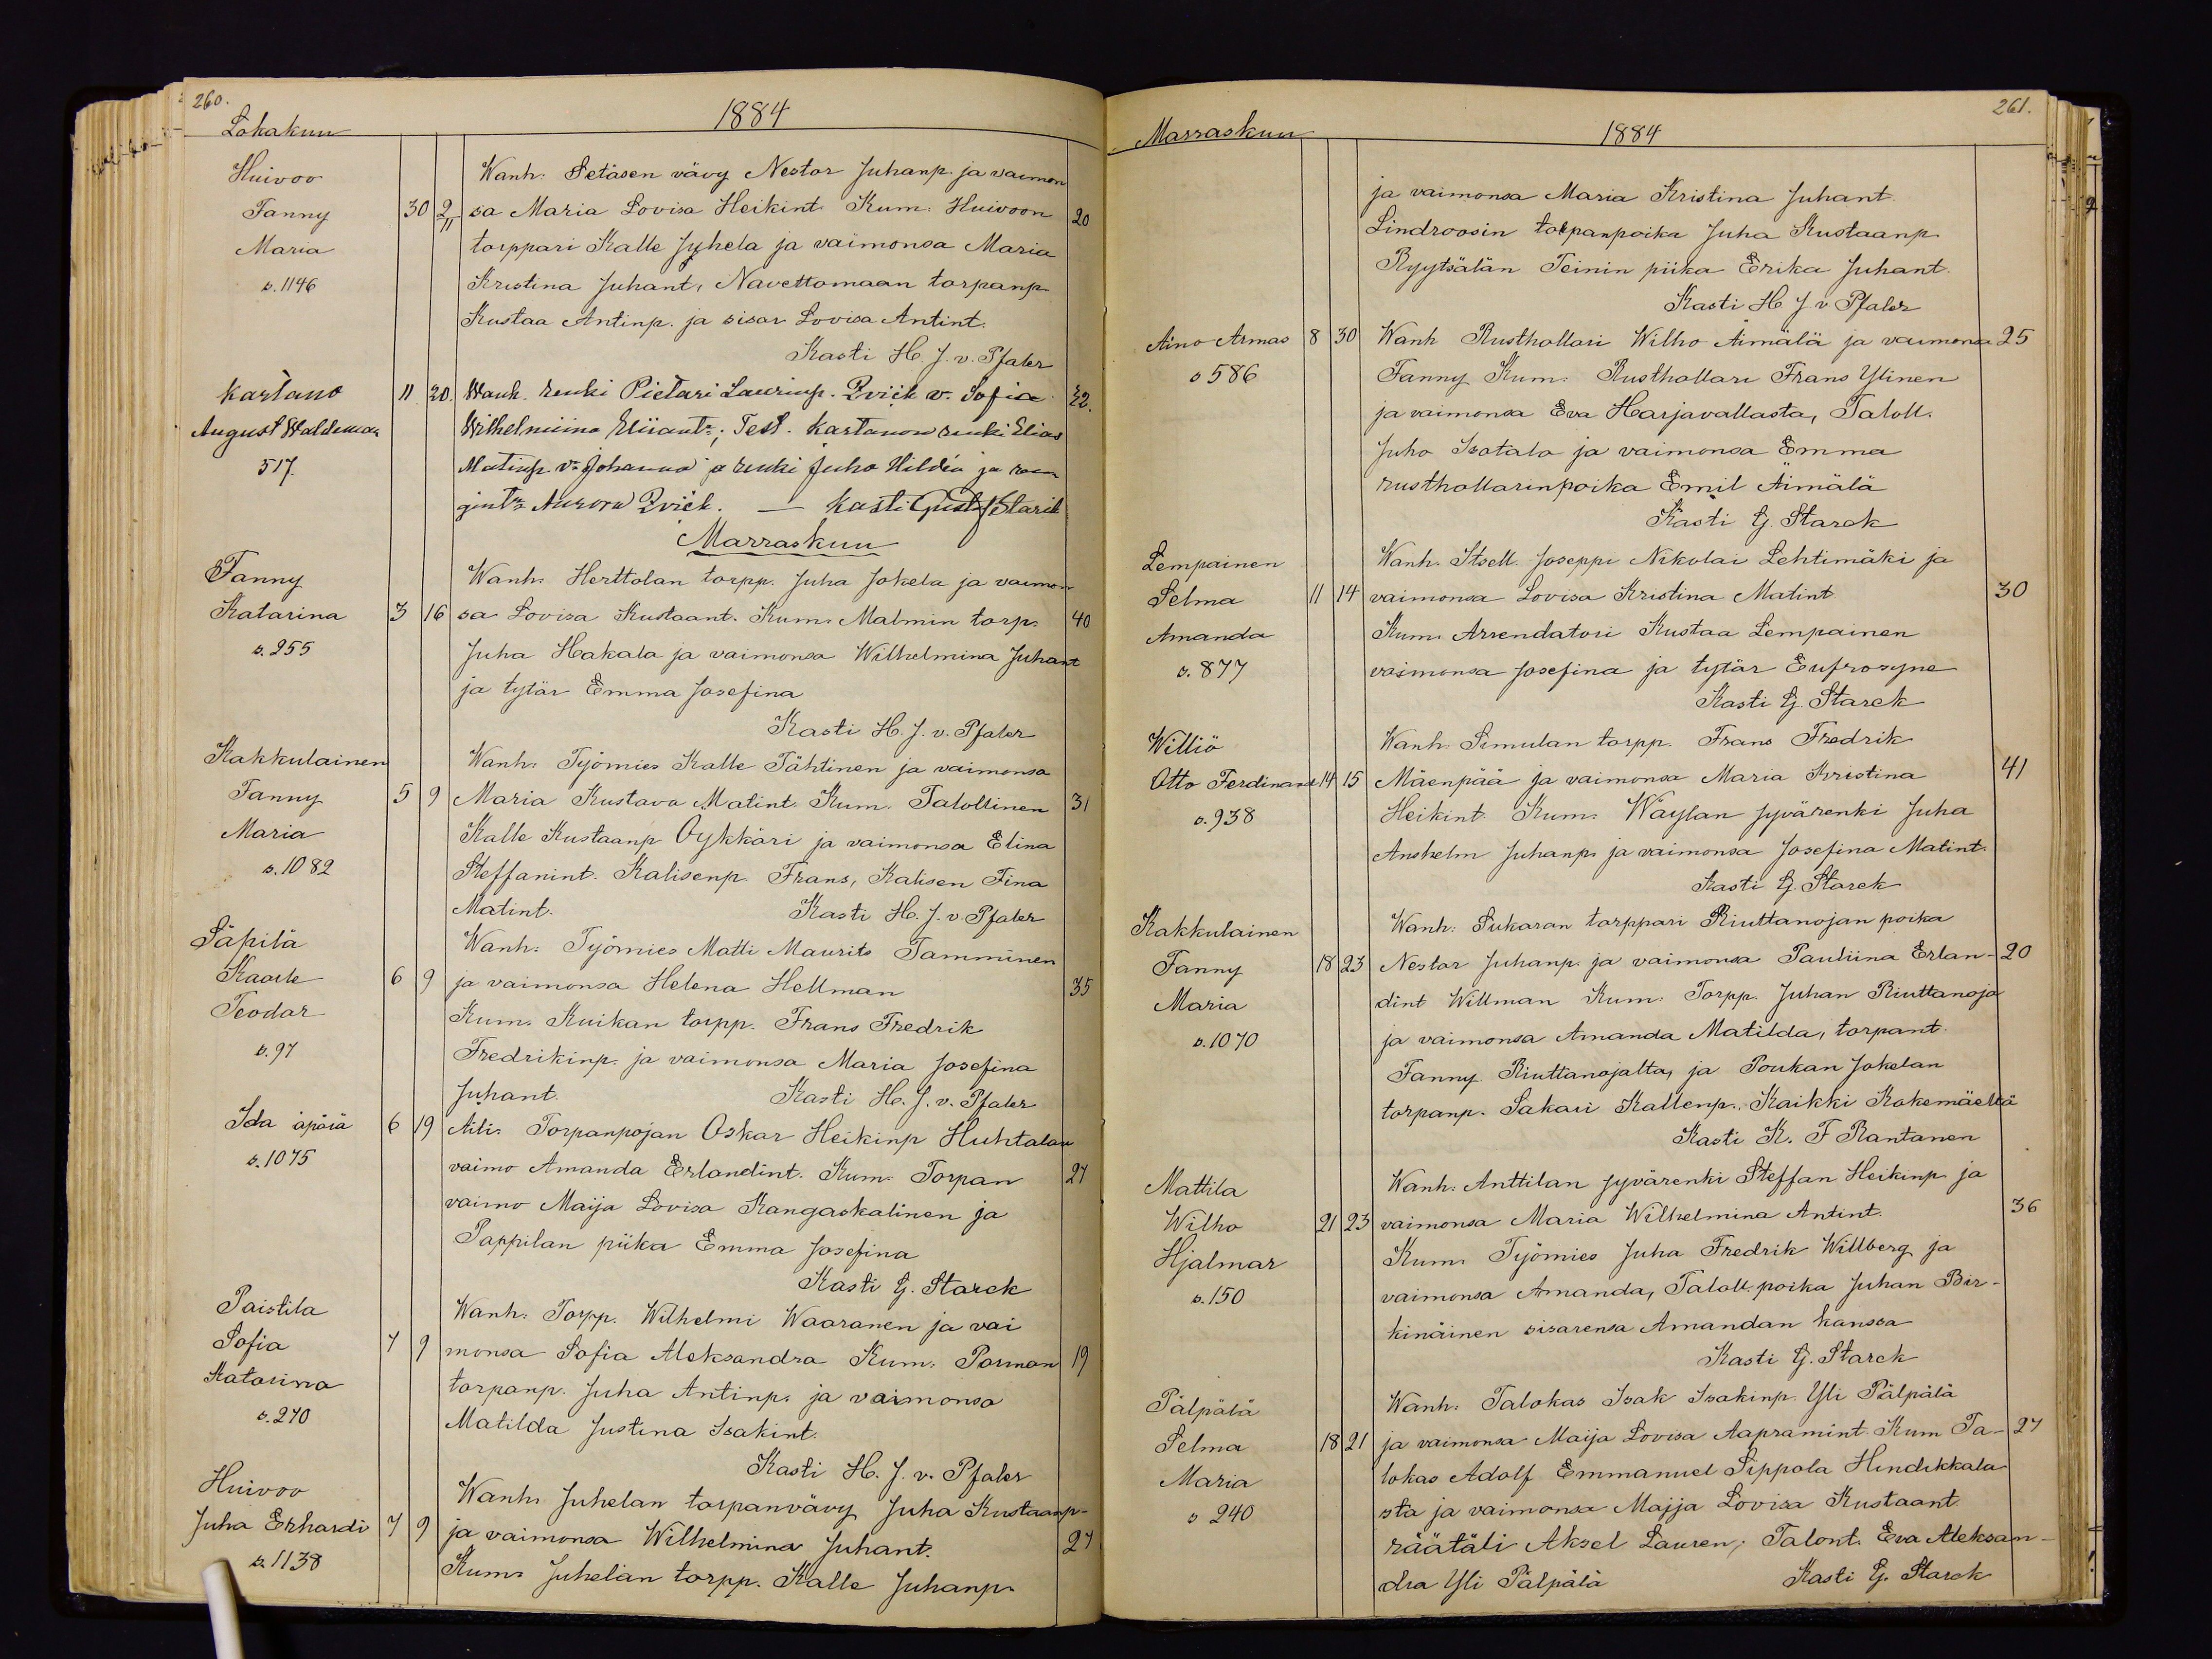 260.
Lokakuu
1884
Huivoo
Wanh. Setäsen vävy Nestor Juhanp. ja vaimon
Fanny 30 2/11 sa Maria Lovisa Heikint. Kum. Huivoon 20
Maria torppari Kalle Jyhela ja vaimonsa Maria
s. 1146 Kristina Juhant, Navettomaan torpanp.
Kustaa Antinp. ja sisar Lovisa Antint.
Kasti H. J. v. Pfaler
Kartano 11 20. Wanh. renki Pietari Laurinp. Qvick v. Sofia 22.
August Waldemar Wilhelmiina Eliiant:; Test. Kartanon renki Elias
517. Matinp. v: Johanna ja renki Juho Hildén ja
Aurora Qvick. — Kasti Gust Starck
Marraskuu
Fanny Wanh. Herttolan torpp. Juha Jokela ja vaimon
Katarina 3 16 sa Lovisa Kustaant. Kum. Malmin torp. 40
s. 255 Juha Hakala ja vaimonsa Wilhelmina Juhant
ja tytär Emma Josefina
Kasti H. J. v. Pfaler
Kakkulainen Wanh. Työmies Kalle Tähtinen ja vaimonsa
Fanny 5 9 Maria Kustava Matint. Kum. Talollinen 31
Maria Kalle Kustaanp Öykkäri ja vaimonsa Elina
s. 1082 Steffanint. Kalisenp. Frans, Kalisen Fina
Matint. Kasti H. J. v. Pfaler
Säpilä Wanh. Työmies Matti Maurits Tamminen
Kaarle 6 9 ja vaimonsa Helena Hellman 35
Teodor Kum. Kuikan torpp. Frans Fredrik
s. 97 Fredrikinp. ja vaimonsa Maria Josefina
Juhant. Kasti H. J. v. Pfaler
Ida äpärä 6 19 Äiti. Torpanpojan Oskar Heikinp Huhtalan
s. 1075 vaimo Amanda Erlandint. Kum. Torpan 27
vaimo Maija Lovisa Kangaskalinen ja
Pappilan piika Emma Josefina
Kasti G. Starck
Paistila Wanh. Torpp. Wilhelmi Waaranen ja vai
Sofia 7 9 monsa Sofia Aleksandra Kum. Porman 19
Katarina torpanp. Juha Antinp. ja vaimonsa
s. 270 Matilda Justina Isakint.
Kasti H. J. v. Pfaler
Huivoo Wanh. Juhelan torpanvävy Juha Kustaanp.
Juha Erhardi 7 9 ja vaimonsa Wilhelmina Juhant. 27
s. 1138 Kum. Juhelan torpp. Kalle Juhanp.
261.
Marraskuu
1884
ja vaimonsa Maria Kristina Juhant.
Lindroosin torpanpoika Juha Kustaanp.
Ryytsälän Teinin piika Erika Juhant.
Kasti H J v. Pfaler
Aino Armas 8 30 Wanh Rusthollari Wilho Äimälä ja vaimonsa 25
s 586 Fanny Kum. Rusthollari Frans Ylinen
ja vaimonsa Eva Harjavallasta, Taloll.
Juho Isotalo ja vaimonsa Emma
rusthollarinpoika Emil Äimälä
Kasti G. Starck
Lempainen Wanh. Itsell. Joseppi Nikolai Lehtimäki ja
Selma 11 14 vaimonsa Lovisa Kristina Matint. 30
Amanda Kum. Arrendatori Kustaa Lempainen
s. 877 vaimonsa Josefina ja tytär Eufrosyne
Kasti G. Starck
Williö Wanh. Simulan torpp. Frans Fredrik
Otto Ferdinand 14 15 Mäenpää ja vaimonsa Maria Kristina 41
s. 938 Heikint. Kum. Wäylän jyvärenki Juha
Anshelm Juhanp. ja vaimonsa Josefina Matint.
Kasti G. Starck
Kakkulainen Wanh. Sukaran torppari Riuttanojan poika
Fanny 18 23 Nestor Juhanp. ja vaimonsa Pauliina Erlan- 20
Maria dint Willman Kum. Torpp. Juhan Riuttanoja
s. 1070 ja vaimonsa Amanda Matilda, torpant.
Fanny Riuttanojalta, ja Poukan Jokelan
torpanp. Sakari Kallenp., Kaikki Kokemäeltä
Kasti K. F Rantanen
Mattila Wanh. Anttilan jyvärenki Steffan Heikinp. ja
Wilho 21 23 vaimonsa Maria Wilhelmina Antint. 36
Hjalmar Kum. Työmies Juha Fredrik Willberg ja
s. 150 vaimonsa Amanda, Taloll. poika Juhan Bir-
kinäinen sisarensa Amandan kanssa
Kasti G. Starck
Pälpälä Wanh. Talokas Isak Isakinp. Yli Pälpälä
Selma 18 21 ja vaimonsa Maija Lovisa Aapramint. Kum Ta- 27
Maria lokas Adolf Emmanuel Sippola Hindikkala
s 240 sta ja vaimonsa Maija Lovisa Kustaant
räätäli Aksel Lauren, Talont. Eva Aleksan-
dra Yli Pälpälä Kasti G. Starck